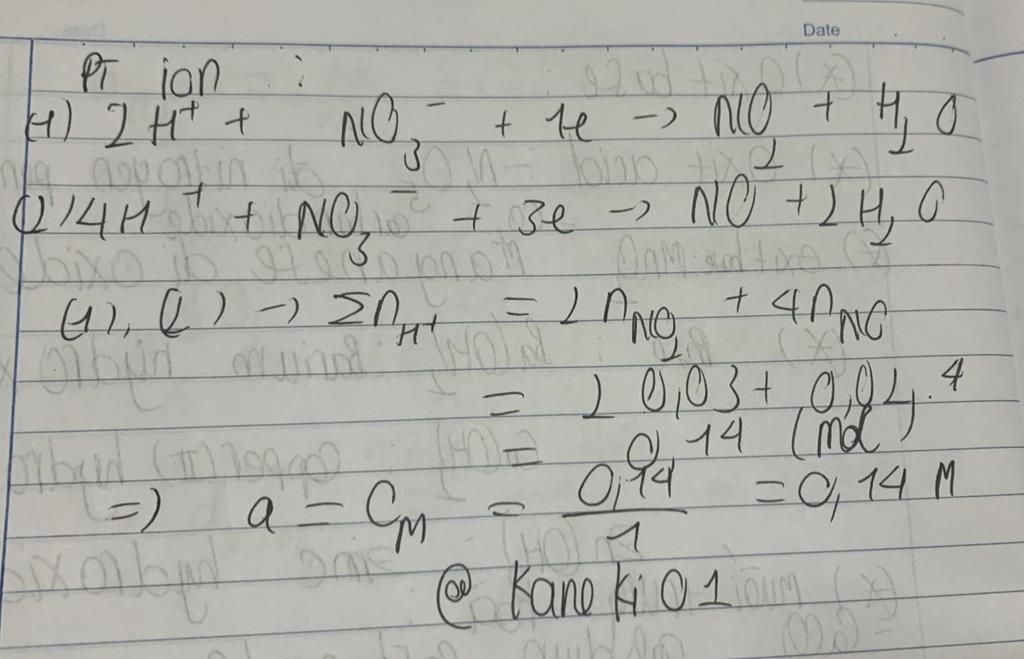 Date
PT ion :
(1) 2H⁺ + NO₃⁻ + 1e → NO₂ + H₂O
(2) 4H⁺ + NO₃⁻ + 3e → NO + 2H₂O
(1), (2) → Σn_H⁺ = 2n_NO₂ + 4n_NO
= 2 0,03 + 0,02.4
= 0,14 (mol)
=) a = C_M = 0,14/1 = 0,14 M
@ Kaneki 01